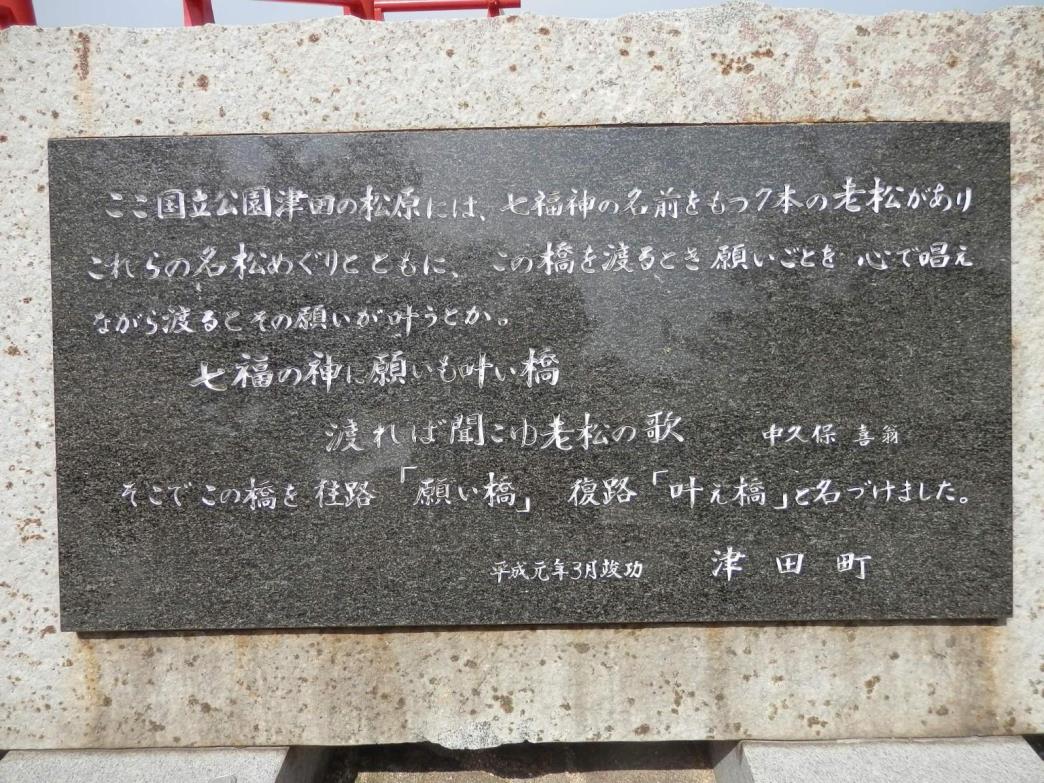 ここ国立公園津田の松原には、七福神の名前をもつ7本の老松があり
これらの名松めぐりとともに、この橋を渡るとき願いごとを心で唱え
ながら渡るとその願いが叶うとか。
七福の神に願いも叶い橋
渡れば聞こゆ老松の歌 中久保喜翁
そこでこの橋を往路「願い橋」復路「叶え橋」と名づけました。
平成元年3月竣功 津田町